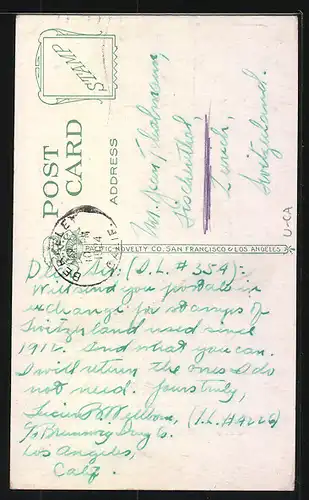 STAMP
POST CARD
ADDRESS
Fischenthal,
Zurich,
Switzerland.
U-CA
BERKELEY
CALIF.
PACIFIC NOVELTY CO. SAN FRANCISCO & LOS ANGELES
Dear Sir: (I.L. #354):-
Will send you postals in
exchange for stamps of
Switzerland used since
1912. Send what you can.
I will return the ones I do
not need. Yours truly,
(I.L. #4226)
c/o Brunswig Drug Co.
Los Angeles,
Calif.